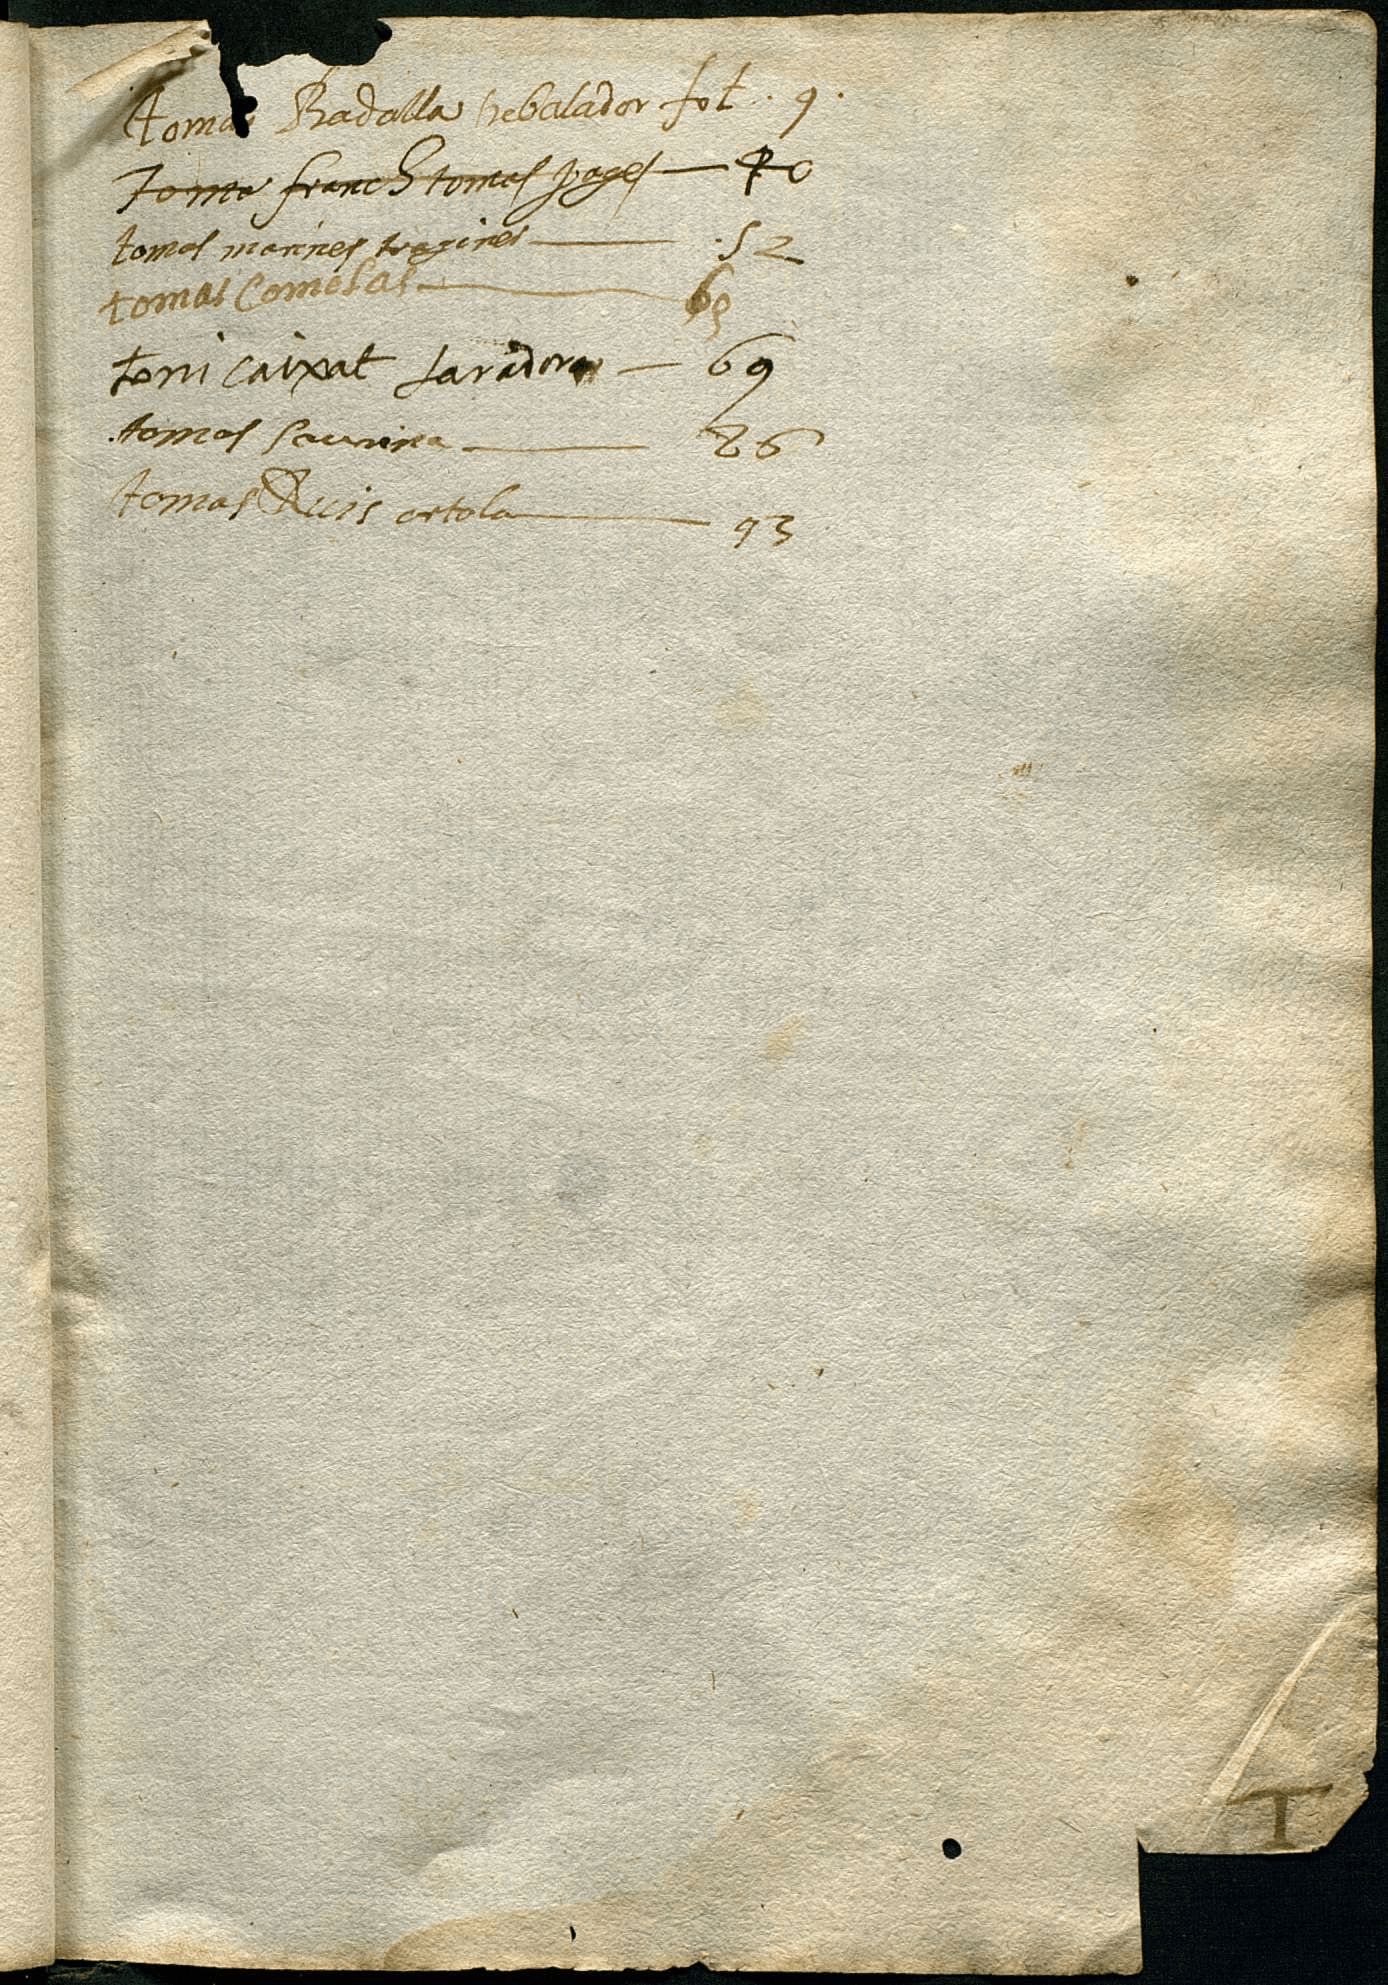 tomas Badalla trebalador fol. 9.
toma franch tomas pages — 40
tomas marines traginer — 52
tomas Comesas — 69
toni caixat — 69
tomas saurina — 86
tomas Ruis ortola — 93
T